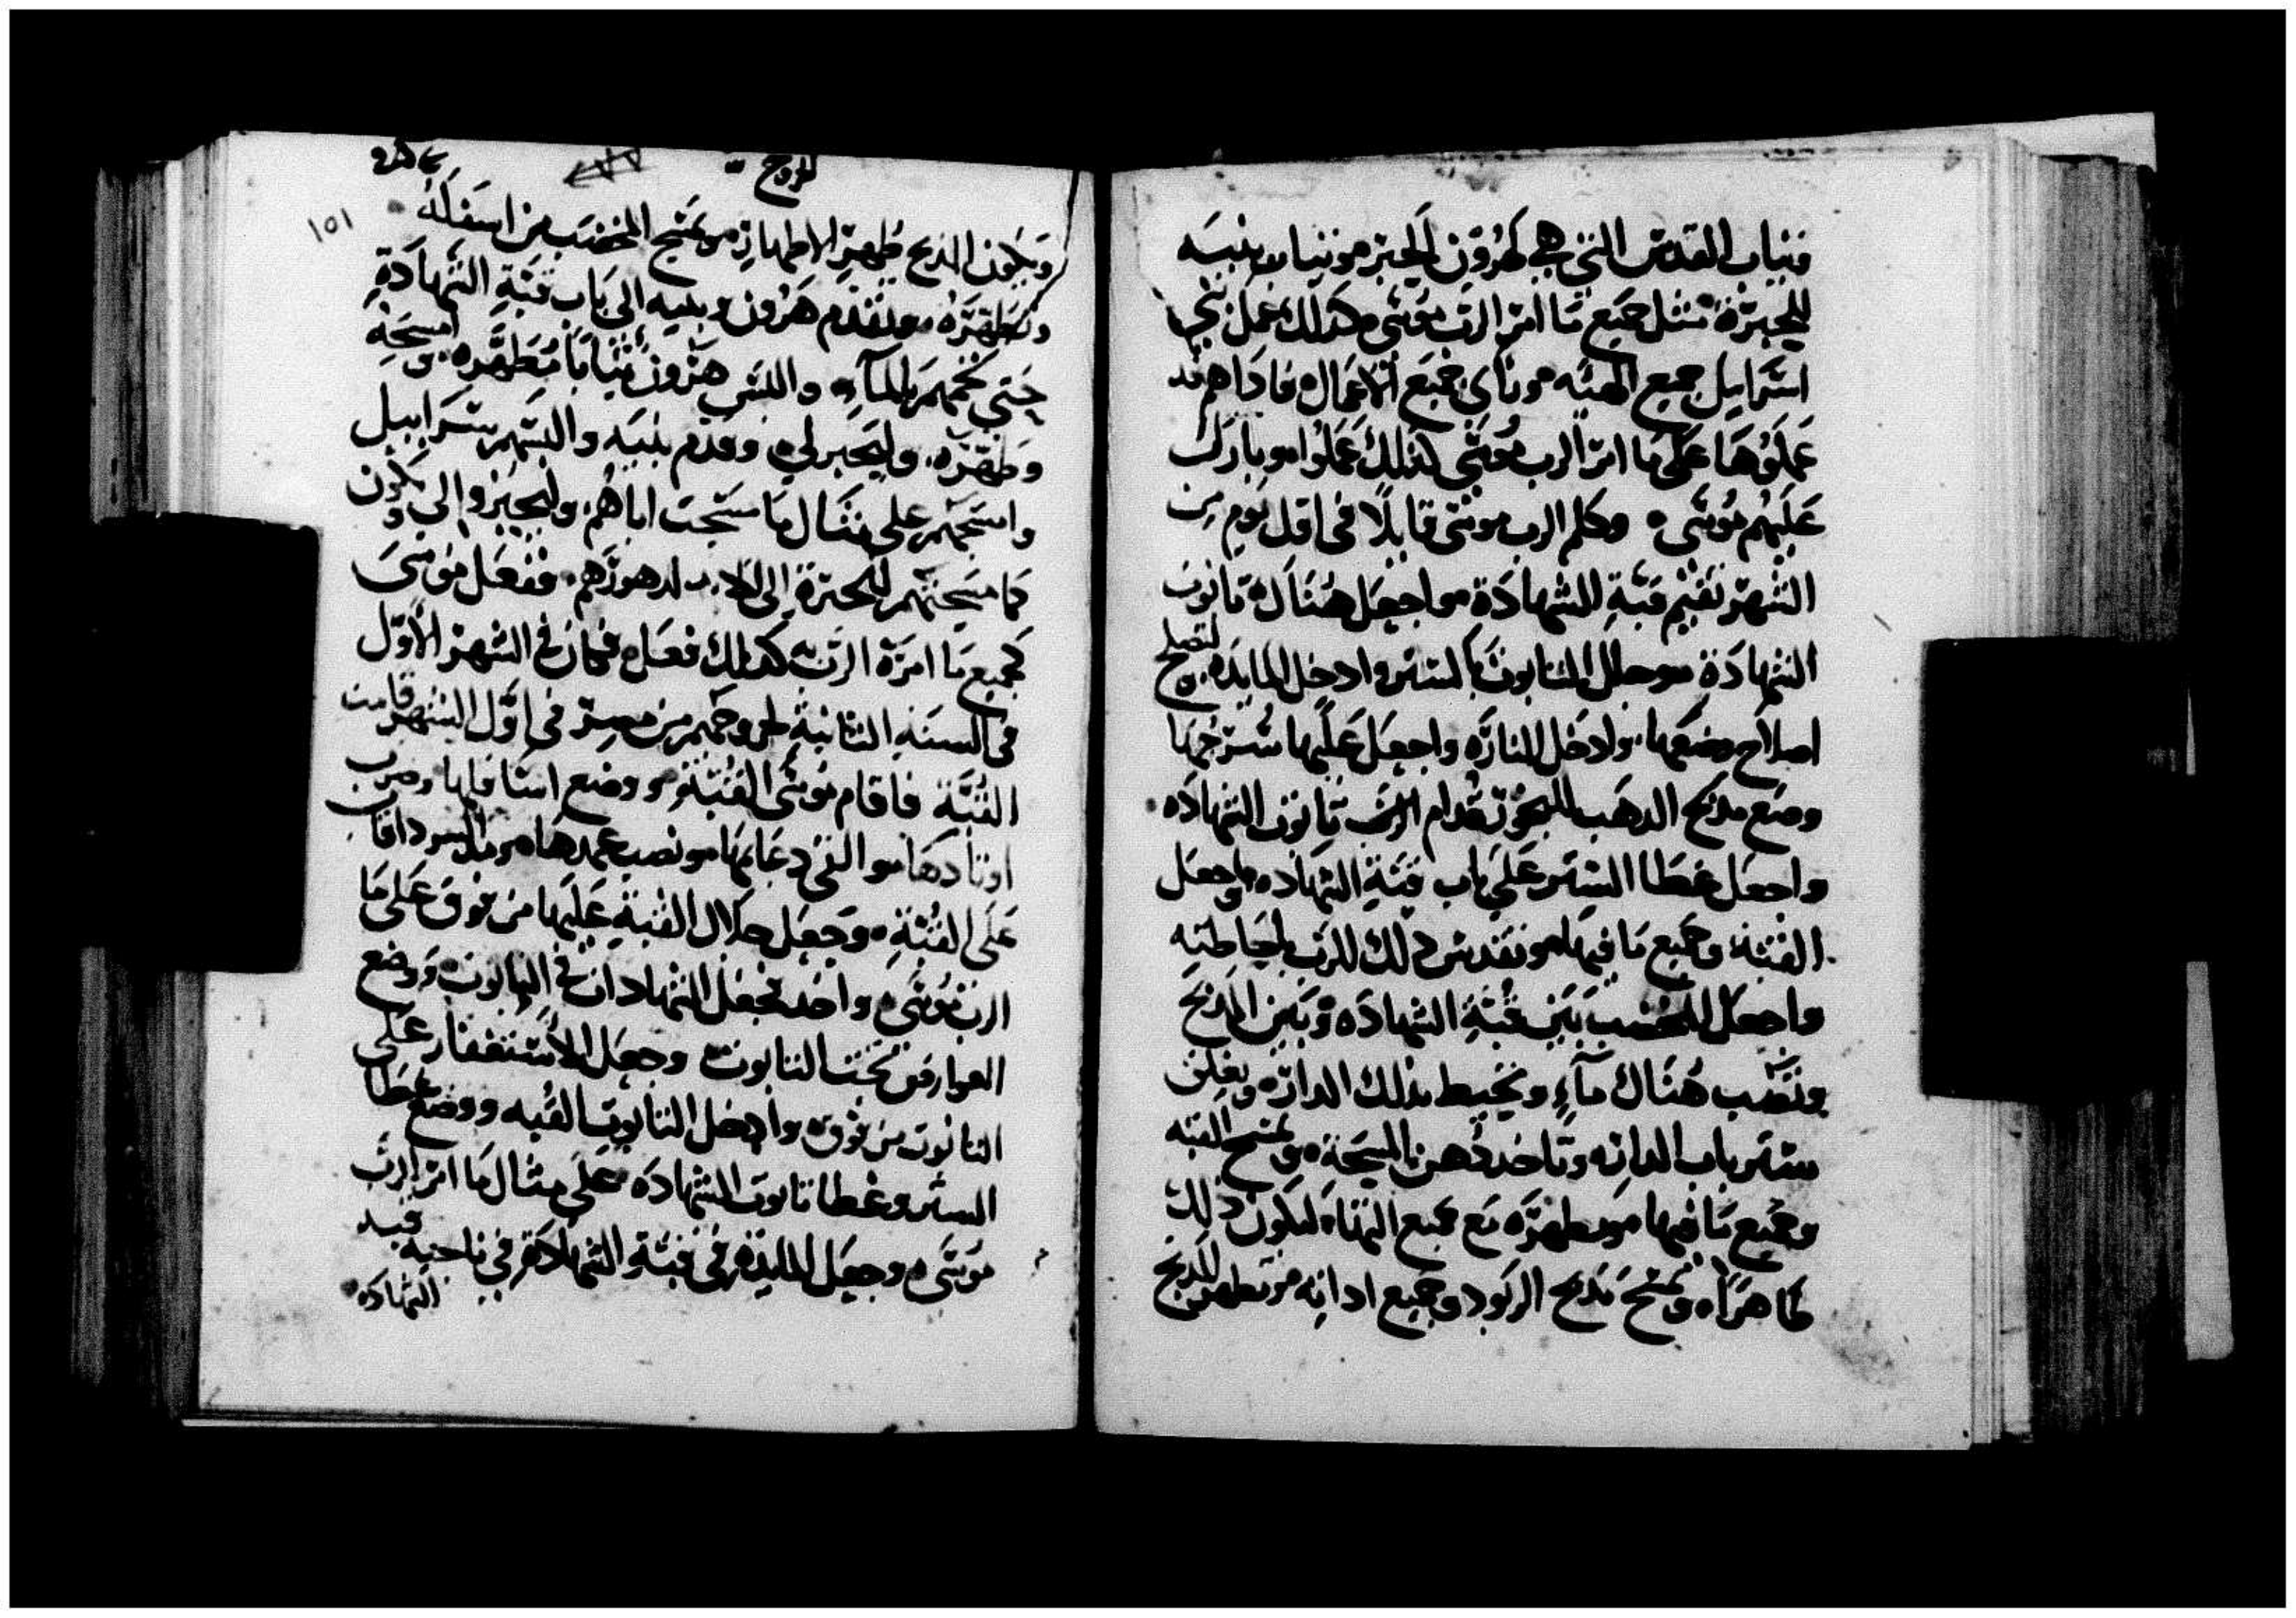 وثياب القدس التي هي لهرون الحبر وثياب بنيه
للحبرة مثل جميع ما امر الرب موسى هكذلك عمل بني
اسرايل جميع الهيئه وناي جميع الاعمال فاداهم قد
عملوها على ما امر الرب موسى كذلك عملوا وبارك
عليهم موسى وكلم الرب موسى قايلا في اول يوم من
الشهر تقيم قبة الشهادة واجعل هناك تابوت
الشهادة وجلل التابوت بالستر وادخل المايده لتصلح
اصلاح وضعها وادخل المناره واجعل عليها سرجها
وضع مذبح الدهب للبخور قدام الرب تابوت الشهاده
واجعل غطا الستر على باب قبة الشهاده واجعل
القبة وجميع ما فيها وتقدس ذلك للرب باحاطته
واجعل المخضب بين قبة الشهاده وبين المذبح
وتصب هناك مآء وتحيط بذلك الداره وتعلق
ستر باب الداره وتاخد دهن المسحة وتمسح القبه
وجميع ما فيها وتطهره مع جميع البناء ليكون ذلك
طاهرا وتمسح مذبح الوقود وجميع اداته وتطهر المذبح
خروج
١٥١
ويكون المذبح طهر الاطهار وتمسح المخضب من اسفله
وتطهره وتقدم هرون وبنيه الى باب قبة الشهادة
حتى تحممهم بالمآء والبس هرون ثيابا مطهره وامسحه
وطهره وليحبر لي وقدم بنيه والبسهم سرابيل
وامسحهم على مثال ما مسحت اباهم وليحبروا لي وتكون
كما مسحتهم للحبرة الى الابد لدهورهم ففعل موسى
كجميع ما امره الرب كذلك فعل فكان في الشهر الاول
في السنه الثانية لخروجهم من مصر في اول الشهر قامت
القبة فاقام موسى القبة ووضع اسافلها وضرب
اوتادها والقى دعايمها ونصب عمدها ومد السرداقات
على القبة وجعل جلال القبة عليها من فوق على ما
الرب موسى واخد فجعل الشهادات في التابوت ووضع
العوارض تحت التابوت وجعل الاستغفار على
التابوت من فوق وادخل التابوت القبه ووضع غطا
الستر وغطا تابوت الشهاده على مثال ما امر الرب
موسى وجعل المايدة في قبة الشهادة في ناحية قبة
الشهاده